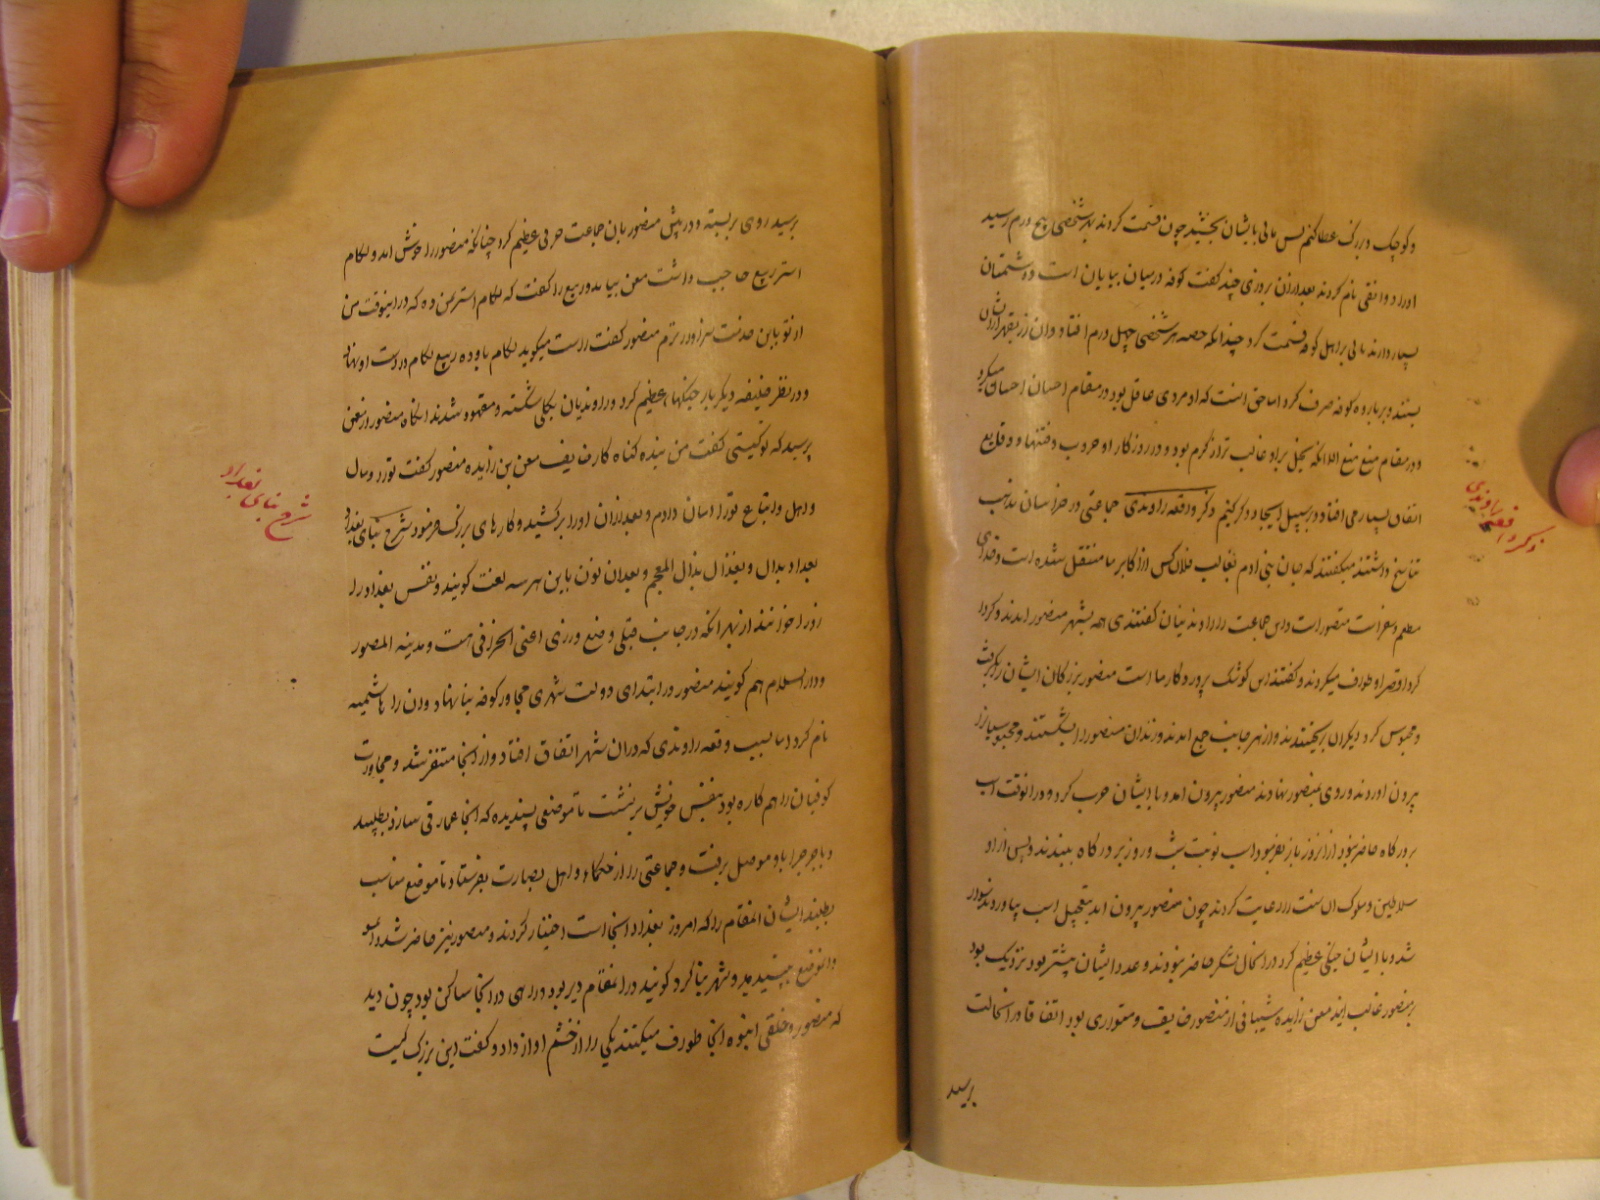 و کوچک و بزرگ عطا کنم پس مالی بایشان بخشید چون قسمت کردند بهر شخصی پنج درم رسید
او را دوانقی نام کردند بعد از آن بروزی چند گفت کوفه در میان بیابان است و دشمنان
بسیار دارند مالی بر اهل کوفه قسمت کرد چنانکه حصه هر شخصی چهل درم افتاد و آن زر بقهر از ایشان
بستند و بر باروه کوفه صرف کرد اما حق است که او مردی عاقل بود در مقام احسان احسان میکرد
و در مقام منع منع الا انکه بخل برو غالب تر از کرم بود و در روزگار او حروب و فتنها و وقایع
اتفاق بسیار می افتاد و بر سبیل ایجاد ذکر کنیم ذکر واقعه راوندی جماعتی در خراسان مذهب
تناسخ داشتند میکفتند که جان بنی ادم بقالب فلان کس از اکابر ما منتقل شده است و خدای
مطعم و منصور است و این جماعت را راوندیان گفتندی همه بشهر منصور امدند و گرد
کرد قصر او طواف میکردند و کفتند این کوشک پرورد کار ما است منصور بزرکان ایشان را بگرفت
و محبوس کرد دیکران برنجیدند و از هر جانب جمع امدند و زندان منصور را بشکستند و محبوسان را
بیرون اوردند و روی بمنصور نهادند منصور بیرون امد و با ایشان حرب کرد و در انوقت اسب
بر درکاه حاضر نبود از انروز باز بفرمود اسب نوبت شب و روز بر درکاه ببندند و پس از او
سلاطین و ملوک ان سنت را رعایت کردند چون منصور بیرون امد بتعجیل اسب بیاوردند سوار
شد و با ایشان جنکی عظیم کرد در انحال لشکر حاضر نبودند و عدد ایشان بیشتر بود نزدیک بود
بر منصور غالب ایند معن زایده شیبانی از منصور خایف و متواری بود اتفاقا در انحالت
برسید
ذکر واقعه راوندی
برسید روی بربسته و در پیش منصور بان جماعت حربی عظیم کرد چنانکه منصور را خوش امد و لکام
استر ربیع حاجب داشت معن بیامد و ربیع را کفت که لکام استر بمن ده که در اینوقت من
از تو باین خدمت سزاوارترم منصور کفت راست میکوید لکام باو ده ربیع لکام در دست او نهاد
و در نظر خلیفه دیکر بار جنکهاء عظیم کرد و راوندیان بکلی شکسته و مقهور شدند انکاه منصور از معن
پرسید که تو کیستی کفت من بنده کناه کار خایف معن بن زایده منصور کفت تو را و مال
و اهل و اتباع تو را امان دادم و بعد از ان او را برکشید و کارهای بزرک فرمود شرح بنای بغداد
بغداد بدال و بغذاذ بذال المعجم و بغدان نون باین هر سه لغت کویند و نفس بغداد را
زورا خوانند از بهر انکه در جانب قبلی وضع ورزی اعنی انحرافی هست و مدینه المنصور
و دار السلام هم کویند منصور در ابتدای دولت شهری مجاور کوفه بنا نهاد و ان را هاشمیه
نام کرد اما بسبب وقعه راوندی که در ان شهر اتفاق افتاد و از انجا متنفر شد و مجاورت
کوفیان را هم کاره بود بنفس خویش برنشست تا موضعی پسندیده که انجا عمارتی سازد بطلبد
و تا جرجرایا و موصل برفت و جماعتی را از حکماء و اهل بصارت بفرستاد تا موضع مناسب
بطلبند ایشان انمقام را که امروز بغداد انجا است اختیار کردند و منصور نیز حاضر شد و ان
موضع بپسندید و شهر بنا کرد کویند در انمقام دیر بود و راهبی در انجا ساکن بود چون دید
که منصور و خلقی انبوه انجا طواف میکنند یکی را از خشم اواز داد و کفت این بزرک کیست
شرح بنای بغداد